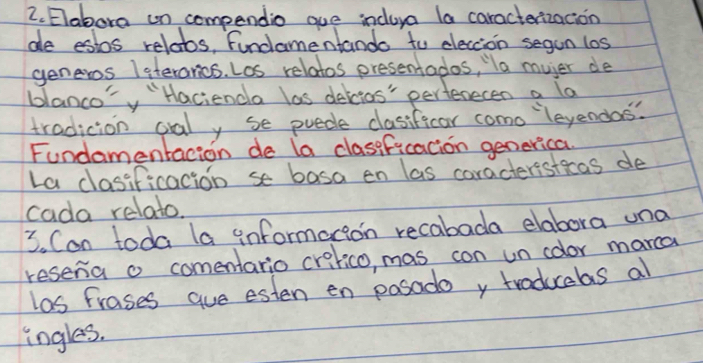 2. Elabora un compendio que induya la caracterización
de estos relatos, fundamentando tu elección segun los
generos literarios. Los relatos presentados, "la mujer de
blanco" y "Hacienda las delcias" pertenecen a la
tradición oral y se puede clasificar como "leyendas".
Fundamentación de la clasificación generica.
La clasificación se basa en las caracteristicas de
cada relato.
3. Con toda la información recabada elabora una
reseña o comentario crítico, mas con un color marca
las frases que esten en pasado y traducelas al
ingles.